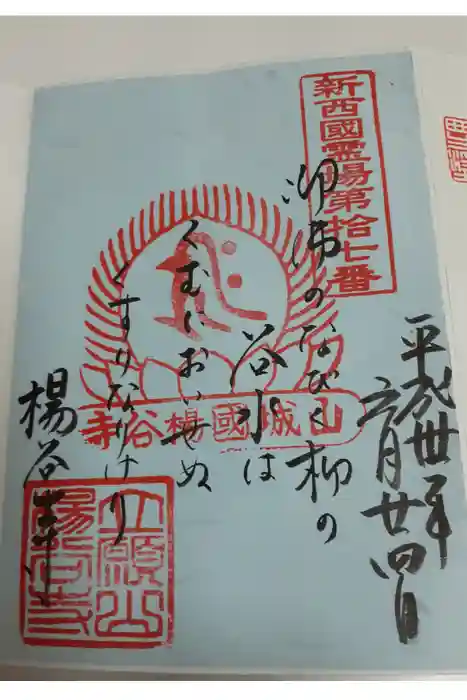 新西國霊場第拾七番
平成卅年
六月廿四日
御佛のなびく柳の
谷水は
くむにおいせぬ
くすりなりけり
楊谷寺
山城國楊谷寺
立願山
楊谷寺